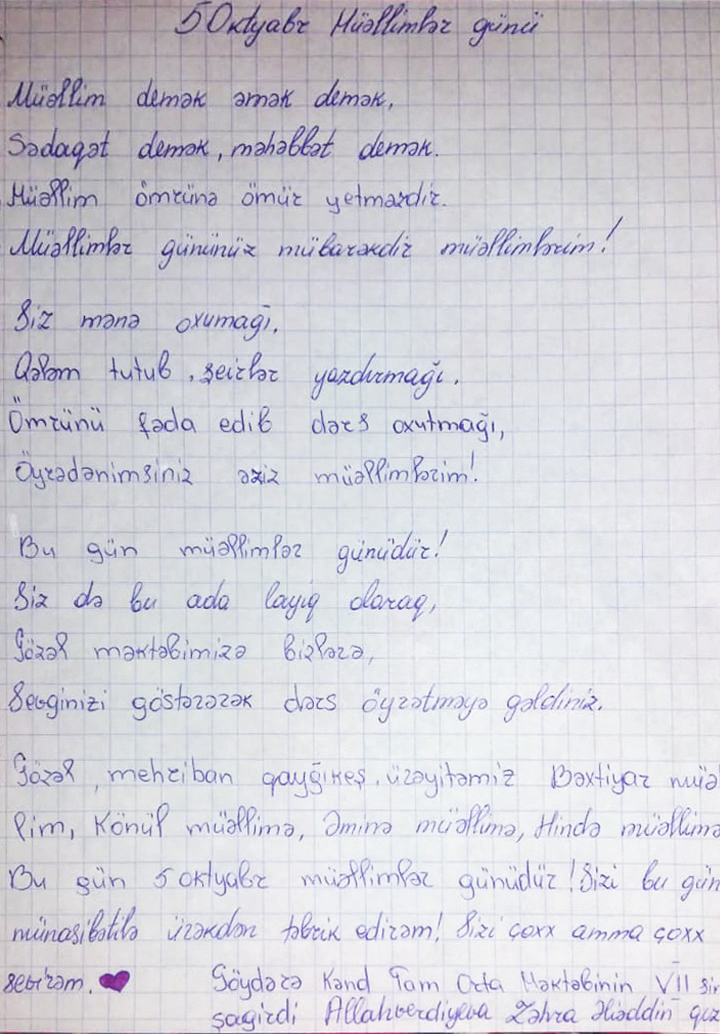 5 Oktyabr Müəllimlər günü
Müəllim demək əmək demək,
Sədaqət demək, məhəbbət demək.
Müəllim ömrünə ömür yetməzdir.
Müəllimlər gününüz mübarəkdir müəllimlərim!
Siz mənə oxumağı,
Qələm tutub, şeirlər yazdırmağı.
Ömrünü fəda edib dərs oxutmağı,
Öyrədənimsiniz əziz müəllimlərim!
Bu gün müəllimlər günüdür!
Siz də bu ada layiq olaraq,
Gözəl məktəbimizə bizlərə,
Sevginizi göstərərək dərs öyrətməyə gəldiniz.
Gözəl, mehriban qayğıkeş, ürəyitəmiz Bəxtiyar müəl
lim, Könül müəllimə, Əminə müəllimə, Hində müəllimə
Bu gün 5 oktyabr müəllimlər günüdür! Sizi bu gün
münasibətilə ürəkdən təbrik edirəm! Sizi çoxx amma çoxx
sevirəm. Göydərə Kənd Tam Orta Məktəbinin VII sin
şagirdi Allahverdiyeva Zəhra Əliəddin qız